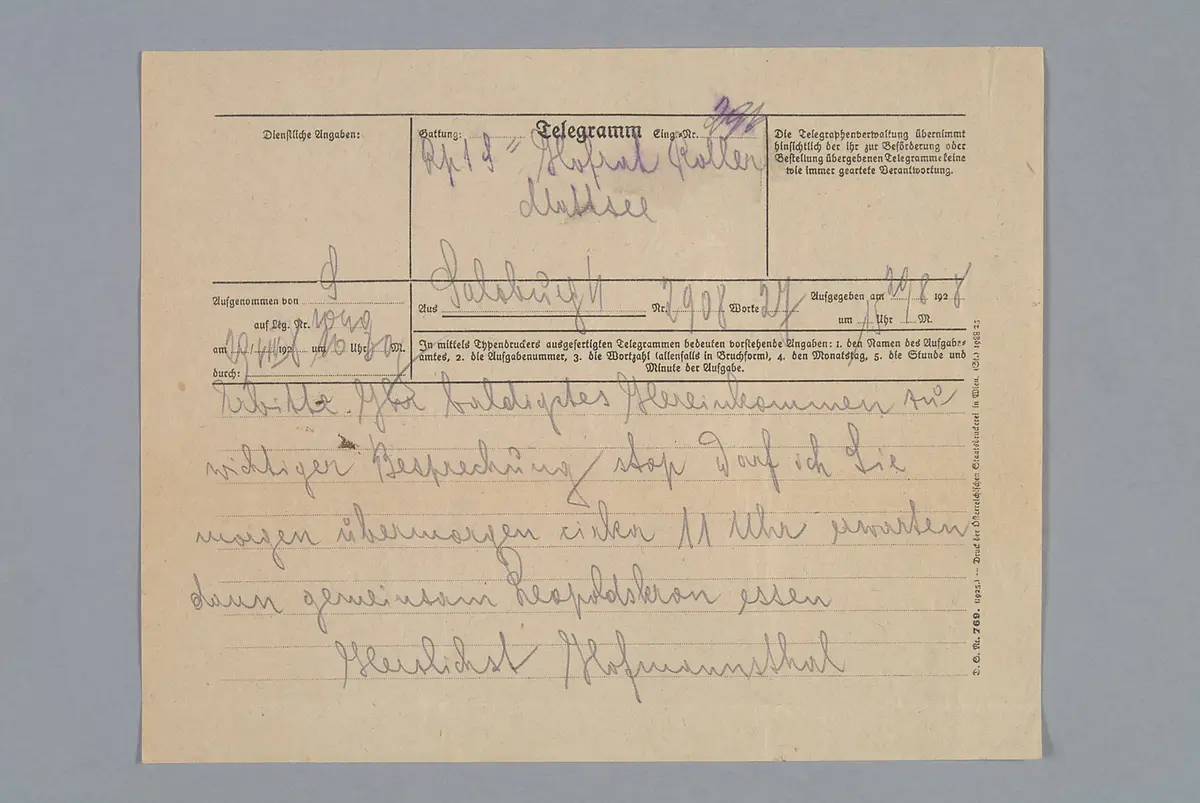 Dienstliche Angaben:
Gattung: Telegramm Eing.-Nr.
Hofrat Roller
Mattsee
Die Telegraphenverwaltung übernimmt
hinsichtlich der ihr zur Beförderung oder
Bestellung übergebenen Telegramme keine
wie immer geartete Verantwortung.
Aufgenommen von S
auf Ltg. Nr.
am 29/VIII 1928 um 16 Uhr 30 M.
durch:
Aus Salzburg Nr. 2908 Worte 27 Aufgegeben am 29/8 1928
um 15 Uhr M.
In mittels Typendruckers ausgefertigten Telegrammen bedeuten vorstehende Angaben: 1. den Namen des Aufgabe-
amtes, 2. die Aufgabenummer, 3. die Wortzahl (allenfalls in Bruchform), 4. den Monatstag, 5. die Stunde und
Minute der Aufgabe.
Erbitte baldigstes Hereinkommen zu
wichtiger Besprechung / stop Darf ich Sie
morgen übermorgen cirka 11 Uhr erwarten
dann gemeinsam Leopoldskron essen
Herzlichst Hofmannsthal
D. S. Nr. 769. (1925.) — Druck der Österreichischen Staatsdruckerei in Wien. (St.) 1988 25